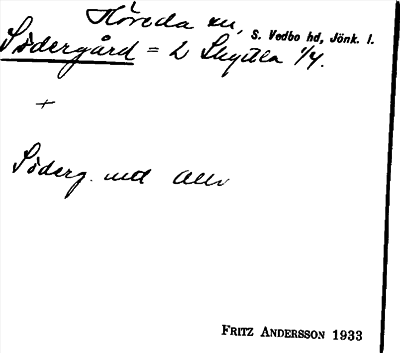 Höreda sn, S. Vedbo hd, Jönk. l.
Södergård = L Skytla 1/4.
+
Söderg. utt
FRITZ ANDERSSON 1933